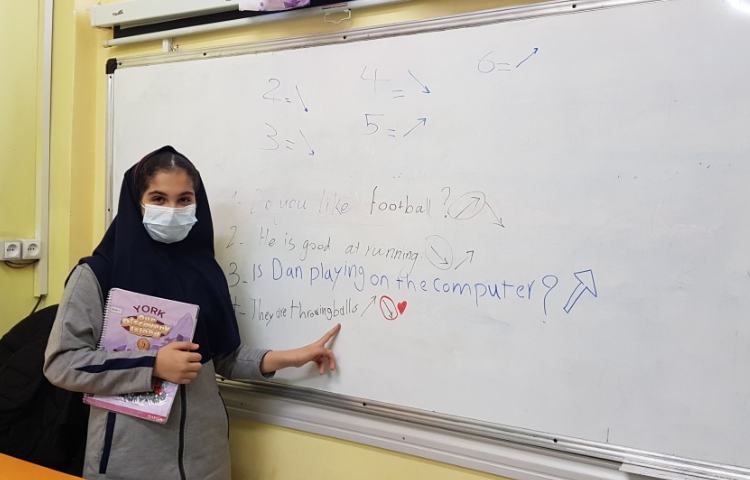 2= ↘ 4= ↘ 6= ↗
3= ↘ 5= ↗
1- Do you like football? ↗ ↘
2- He is good at running ↘ ↗
3- Is Dan playing on the computer? ↗
4- They are throwing balls ↗ ↘ ♥
YORK
Our
Discovery
Island